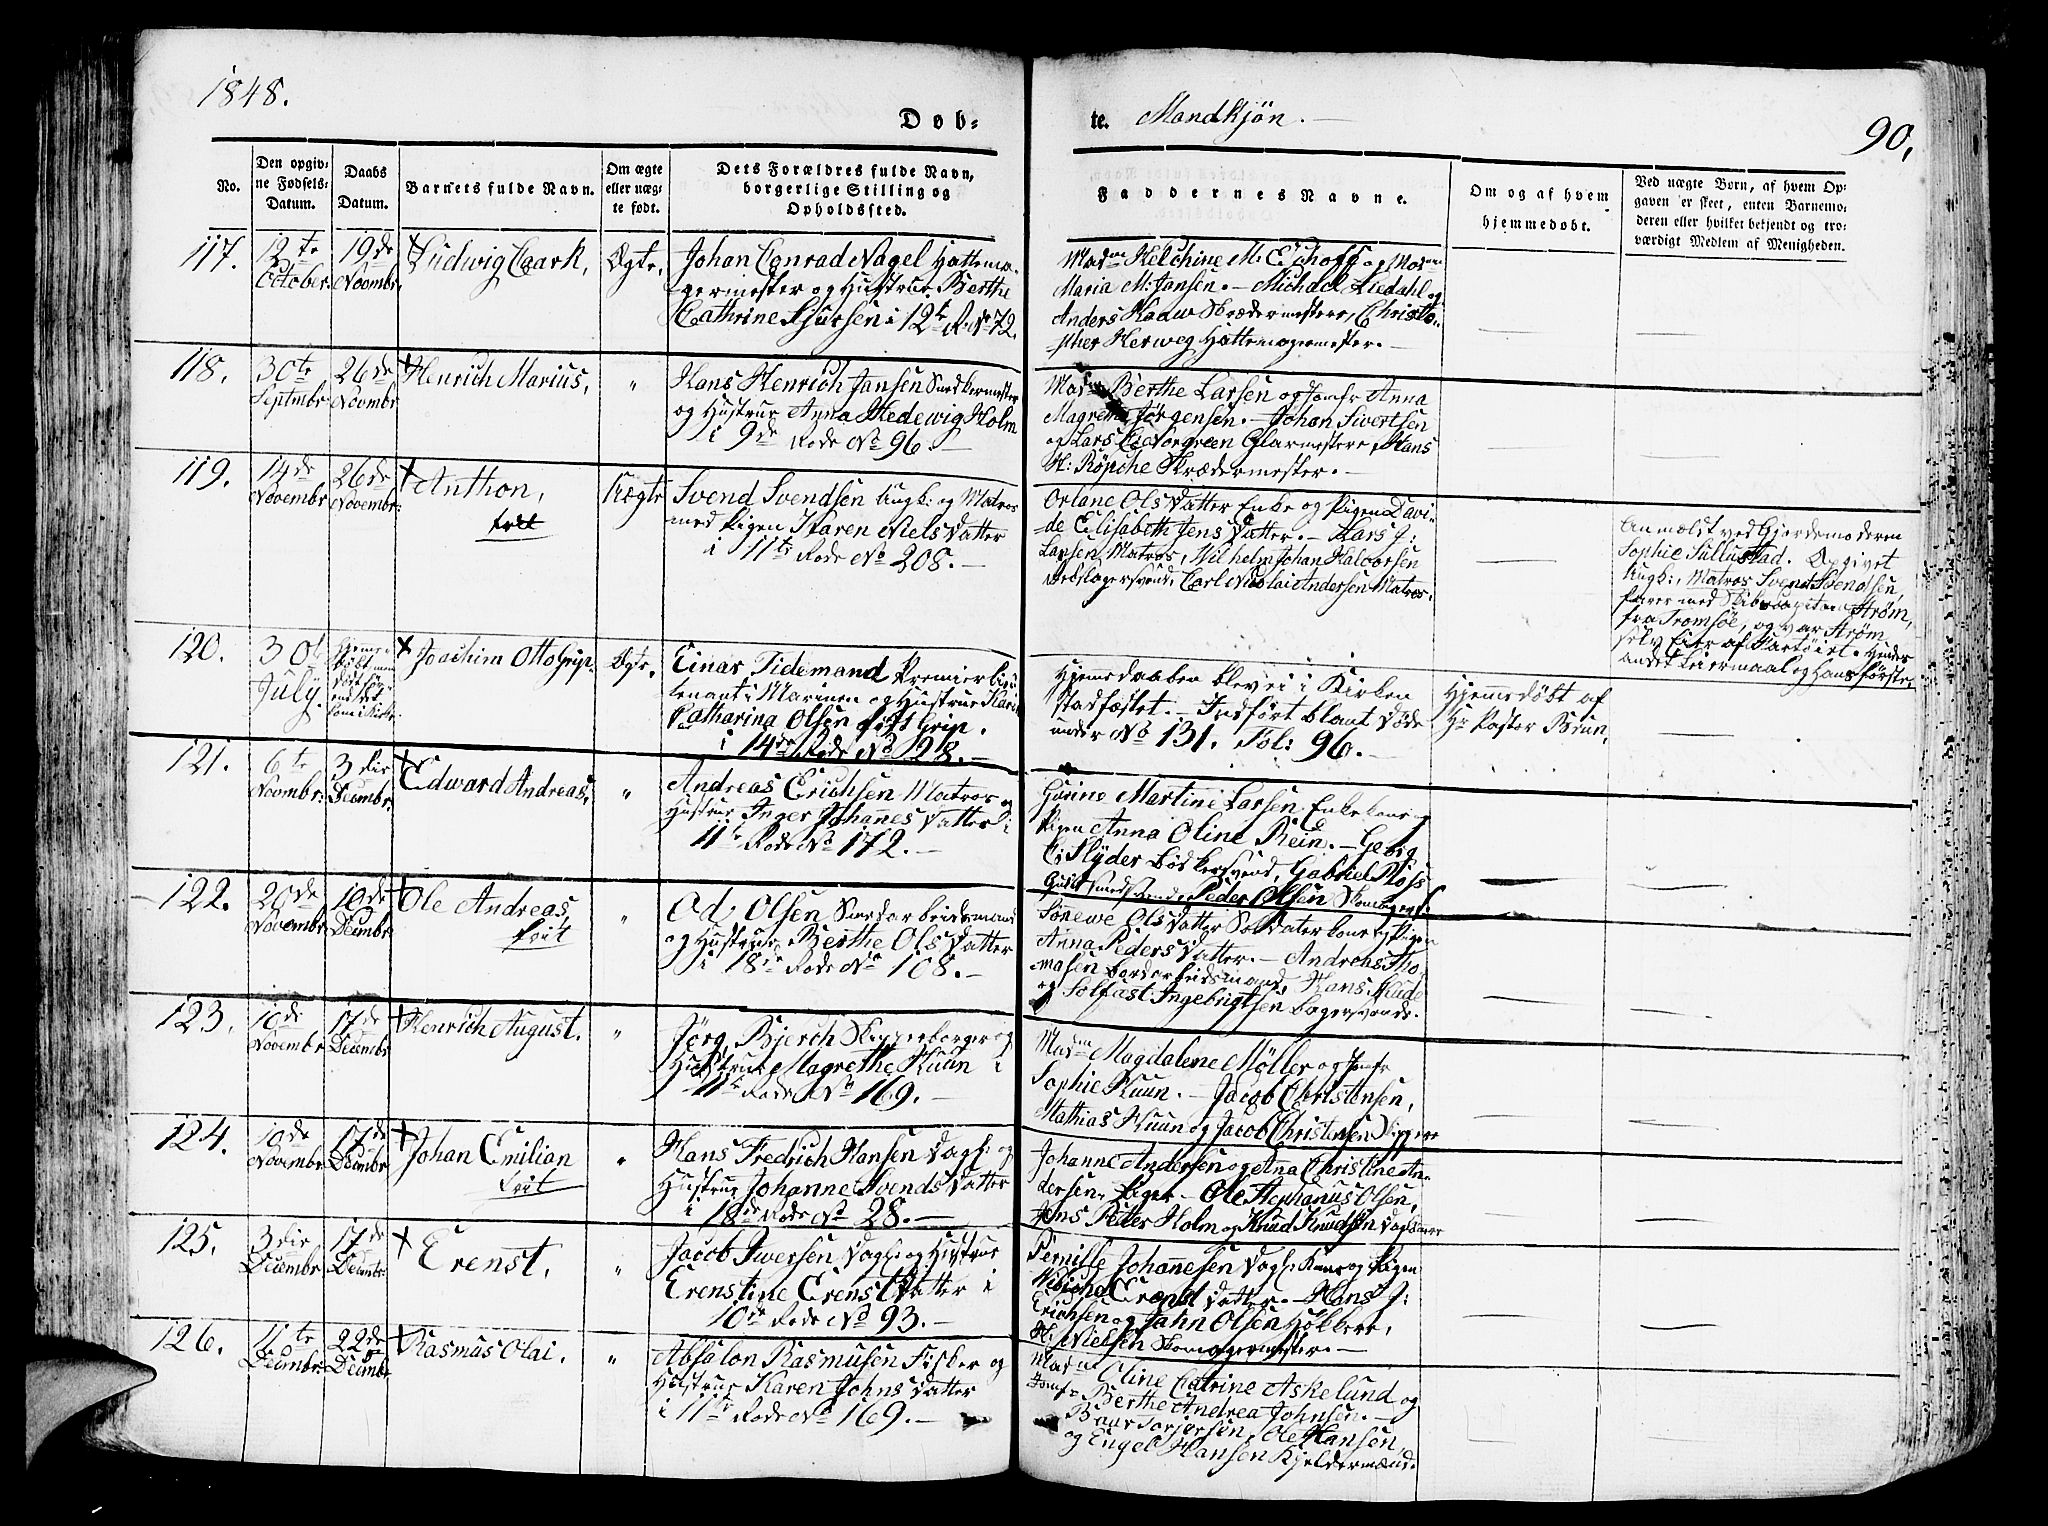 1848.
Døb-
te. Mandkjøn.
90,
No.
Den opgiv-
ne Fødsels-
Datum.
Daabs
Datum.
Barnets fulde Navn.
Om ægte
eller uæg-
te født.
Dets Forældres fulde Navn,
borgerlige Stilling og
Opholdssted.
Faddernes Navne.
Om og af hvem
hjemmedøbt.
Ved uægte Børn, af hvem Op-
gaven er skeet, enten Barnemo-
deren eller hvilket bekjendt og tro-
værdigt Medlem af Menigheden.
117.
12te
October
19de
Novembr.
Ludwig Caark,
Ægte,
Johan Conrad Nagel Hattema-
germester og Hustrue Berthe
Cathrine Sjursen i 12te R. No 72.
Madme Helchine M. Eichoff og Madme
Maria M. Jansen. – Michael Liedahl og
Anders Kaaw Skrædermestere, Christo-
pher Herweg Hattemagermester. –
118.
30te
Septmbr
26de
Novmbr
Henrich Marius,
"
Hans Henrich Jansen Snedkermester
og Hustrue Anna Hedewig Holm
i 9de Rode No 96. –
Madme Berthe Larsen og Jomfr Anna
Magrethe Jørgensen. – Johan Sivertsen
og Lars Norgreen Glarmestere, Hans
H: Röpche Skrædermester. –
119.
14de
Novembr
26de
Novembr.
Anthon,
Uægte
Svend Svendsen Ungk: og Matros
med Pigen Karen Nels Datter
i 11te Rode No 208. –
Orlane Ols Datter Enke og Pigen Davi-
de Elisabeth Jens Datter. – Lars J:
Larsen Matros, Wilhelm Johan Halvorsen
Rebslagersvend, Carl Nicolai Andersen Matros.
Anmeldt ved Gjordemoderen
Sophie Sullustad. Opgivet
Ungk:, Matros Svend Svendsen,
farer med Skibscapitain Strøm,
fra Tromsöe, og var Strøm
selv Eier af Fartöiet. Hendes
andet Leiermaal og Hans første,
120.
30t
July.
Hjemme-
døbt
Joachim Otto Grip.
Ægte.
Einar Tidemand Premierlieu-
tenant i Marinen og Hustrue Karen
Catharina Olsen født Grip.
i 14de Rode No 28. –
Hjemedaaben blev ei i Kirken
stadfæstet. – Indført blant Døde
under No 131. Fol: 96. –
Hjemmedöbt af
Hr Pastor Brun,
121.
6te
Novmbr:
3die
Decmbr:
Edward Andreas,
"
Andreas Erichsen Matros og
Hustrue Inger Johanes Datter i
11te Rode No 172. –
Gurine Martine Larsen Enkekone og
Pigen Anna Oline Rein. – Georg
C: Slyder Bödkersvend, Gabriel Ross
Guldsmedsvend, Peder Olsen Skomagers:
122.
20de
Novembr
10de
Decmbr
Ole Andreas,
"
Od Olsen Sardarbeidsmand
og Hustrue Berthe Ols Datter
i 18de Rode No 108. –
Sønewe Ols Datter Soldaterkone og Pigen
Anna Peders Datter. – Andreas Tho-
masen Jordarbeidsmand, Hans Hude
og Solfast Ingebrigtsen Bagersvende.
123.
10de
Novembr
17de
Decembr
Henrich August.
"
Jörg. Bjerch Skipperborger og
Hustrue Magrethe Kuun i
11te Rode No 169. –
Madme Magdalene Møller og Jomfr
Sophie Kuun. – Jacob Christensen,
Mathias Kuun og Jacob Christensen Skippere
124.
10de
Novembr
17de
Decmbr
Johan Emilian
"
Hans Fredrich Hansen Dagk: og
Hustrue Johanne Svends Datter
i 18de Rode No 28. –
Johanne Andersen og Ana Christine An-
dersen, Piger – Ole Stephanus Olsen,
Jens Peter Holm og Knud Knudsen Dagkarre
125.
3die
Decembr
17de
Decmbr:
Erenst.
"
Jacob Iwersen Dagk: og Hustrue
Erenstine Erenst Datter i
10de Rode No 93. –
Pernille Johannesen Dagk: Kone og Pigen
Erenst Datter. – Hans J:
Erichsen og Jahn Olsen Høkkere,
H: Nielsen Skomagermester. –
126.
11te
Decmbr:
22de
Decmbr
Rasmus Olai.
"
Absalon Rasmusen Fisker og
Hustrue Karen Johns Datter
i 11te Rode No 169. –
Madme Oline Catrine Askelund og
Jomfr Berthe Andrea Johnsen. –
Baar Torjersen, Ole Hansen,
og Engel Hansen Kjeldermænd.